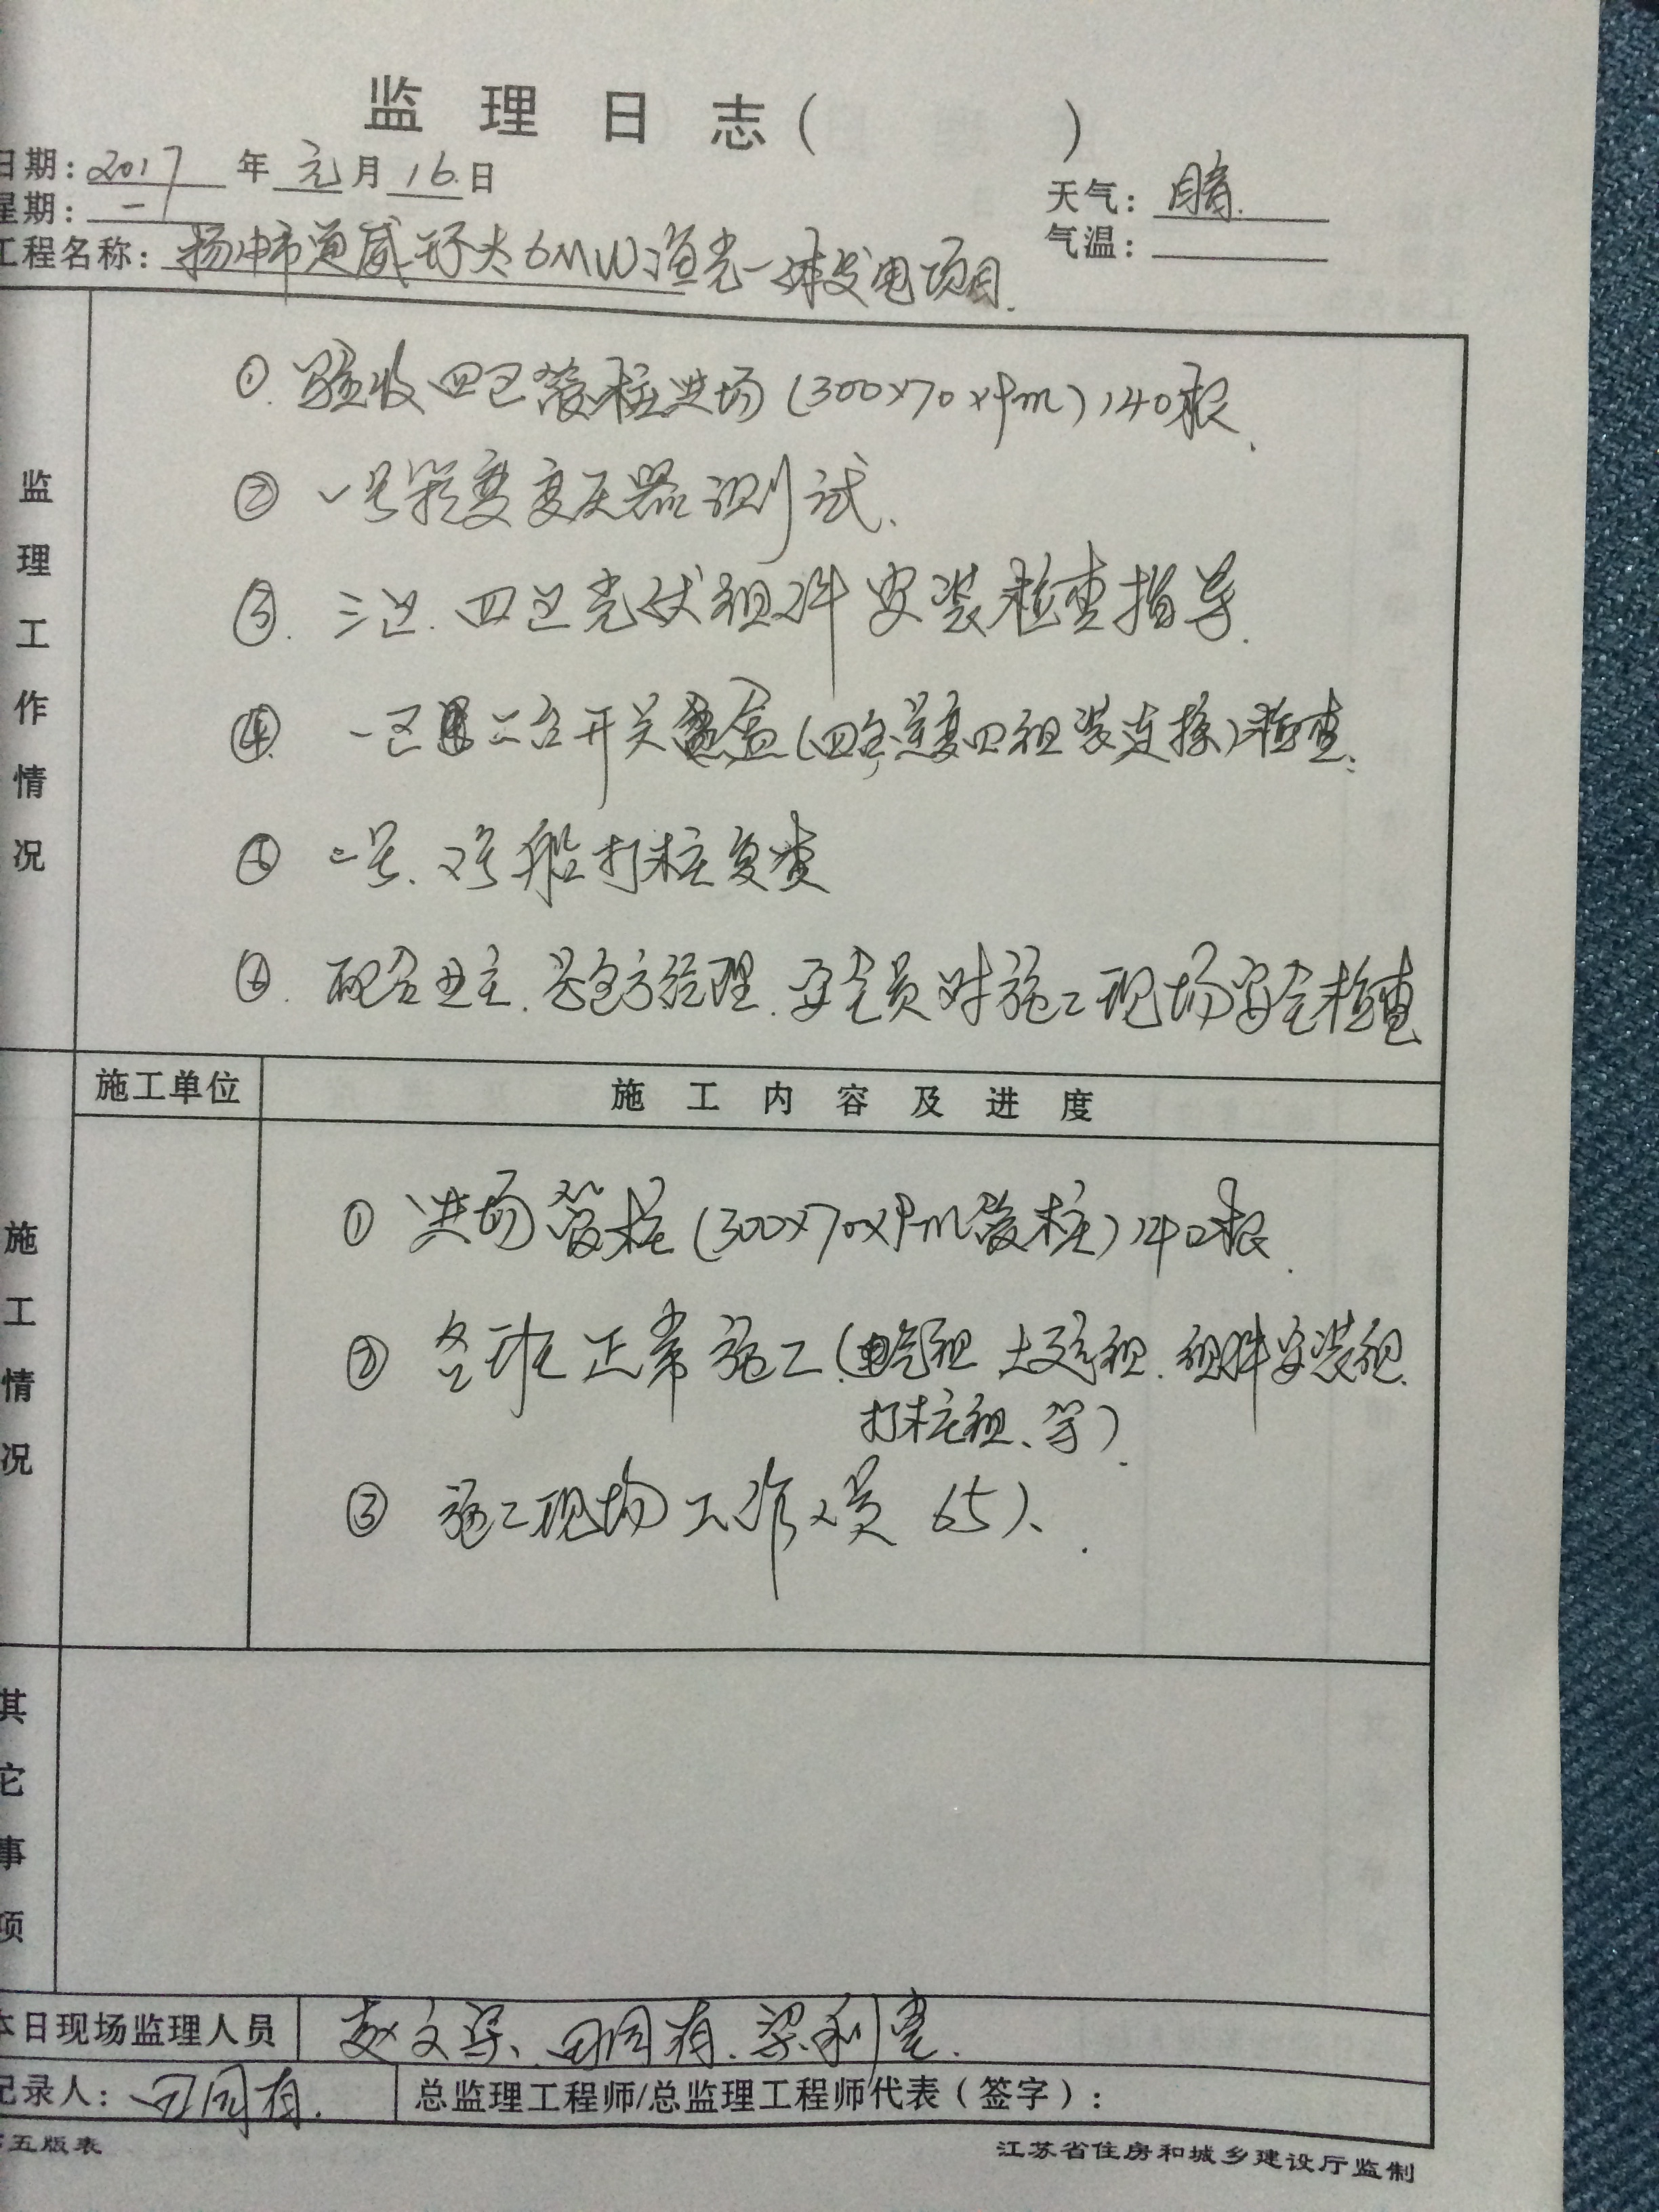 监理日志(　　　)
日期: 2017 年 元 月 16 日
天气: 晴.
星期: 一
气温:
工程名称: 扬中市通威 6MW渔光一体发电项目.
监理工作情况
①. 验收四区管桩进场(300×70×9m)140根.
② 一号箱变变压器测试.
③. 三区.四区光伏组件安装检查指导.
④. 一区 二台开关 检查.
⑤ 二号. 船打桩复查
⑥. 配合业主.总包方经理.安全员对施工现场安全检查
施工单位
施工内容及进度
施工情况
① 进场管桩(300×70×9m管桩)140根.
② 各班正常施工(电气组 土建组.组件安装组.
打桩组、等).
③ 施工现场工作人员 65人.
其它事项
本日现场监理人员
赵文 、田国有.梁利
记录人: 田国有.
总监理工程师/总监理工程师代表(签字):
五版表
江苏省住房和城乡建设厅监制